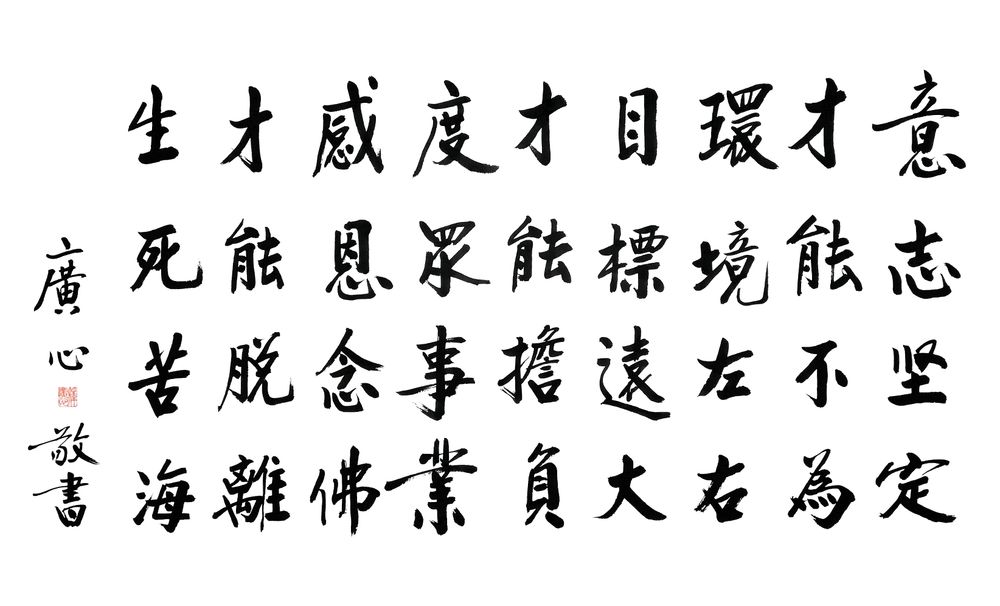 意志坚定
才能不為
環境左右
目標遠大
才能擔負
度眾事業
感恩念佛
才能脱離
生死苦海
廣心敬書